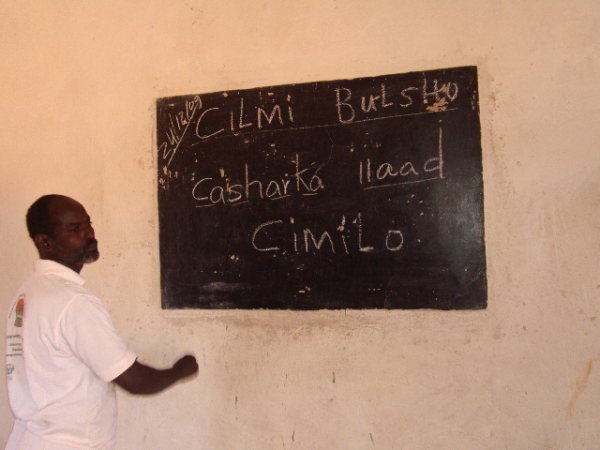 24/12/09
CiLMi BULSHO
casharka 11aad
CiMiLo